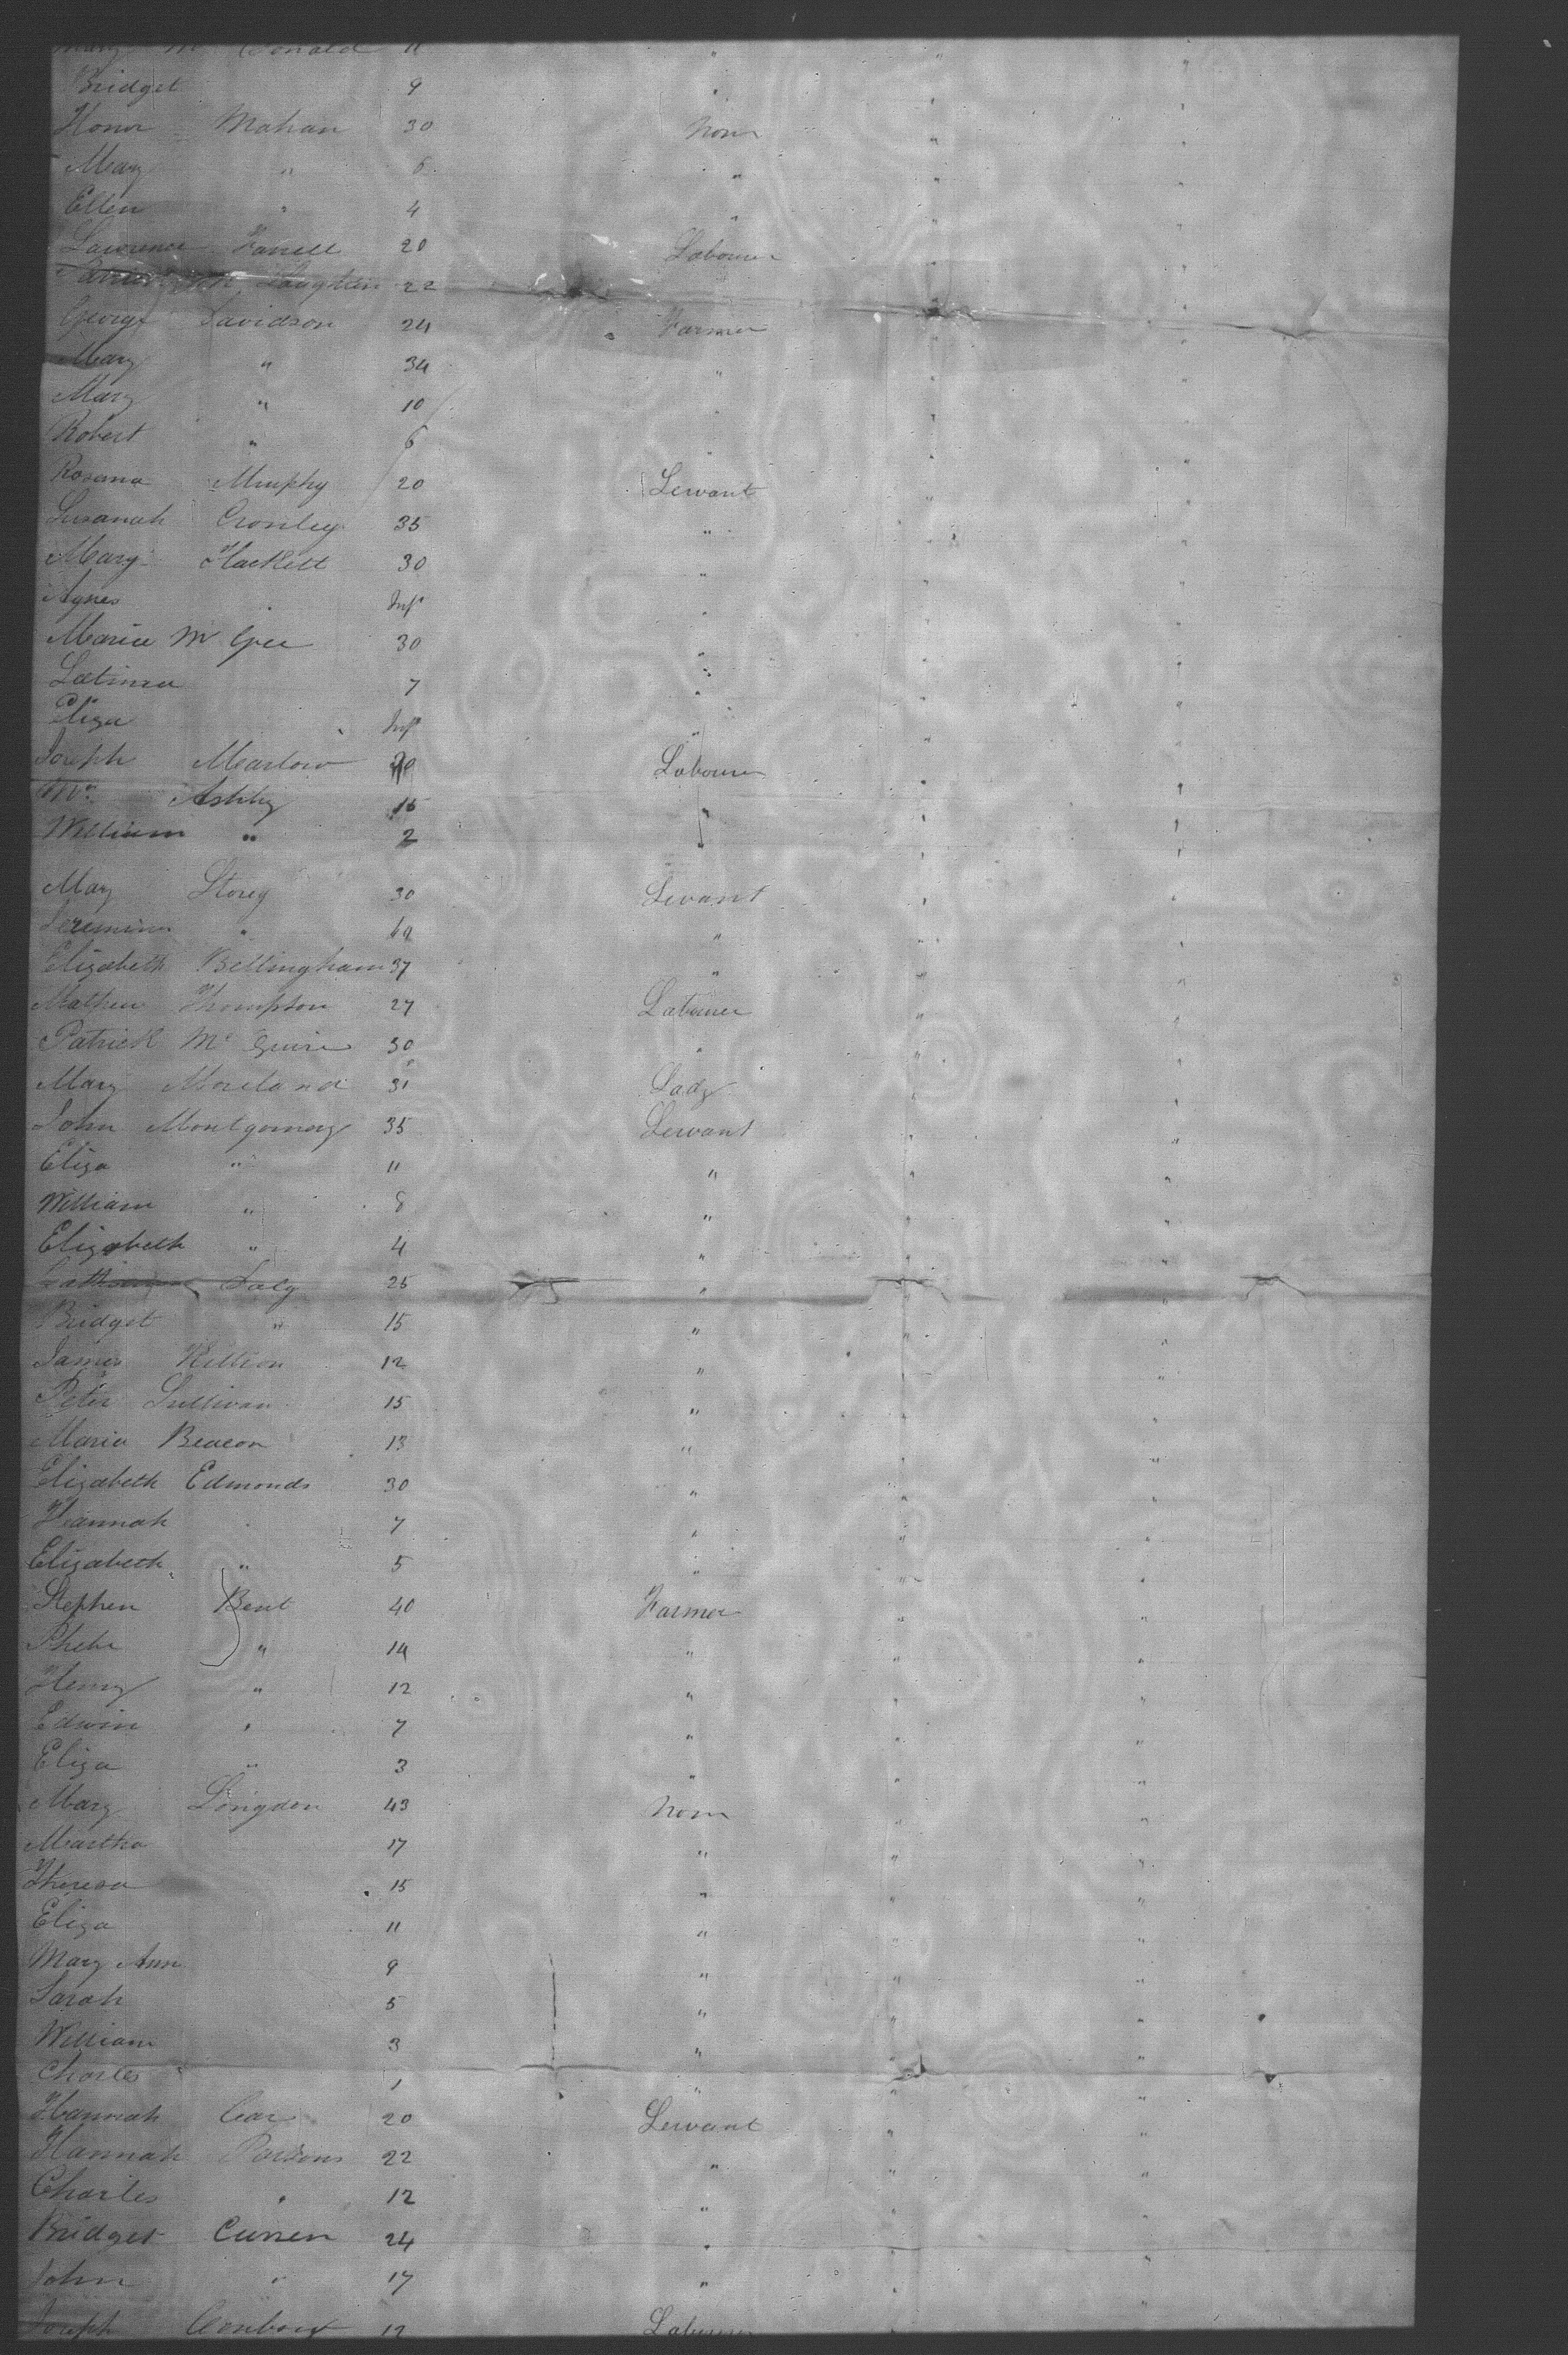 Mary Mc Donald 11 " " "
Bridget 9 " " "
Honor Mahan 30 None " "
Mary " 6 " " "
Ellen " 4 " " "
Lawrence Farrell 20 Labourer " "
Mc Laughlin 22
George Davidson 24 Farmer " "
Mary " 34 " " "
Mary " 10 " " "
Robert " 6 " " "
Rosanna Murphy 20 Servant " "
Susanah Cronley 35 " " "
Mary Hackett 30 " " "
Agnes " Inft " " "
Maria Mc Gee 30 " " "
Latimea 7 " " "
Eliza " Inft " " "
Joseph Marlow 20 Labourer " "
Mr Ashby 15 " " "
William " 2 " " "
Mary Storey 30 Servant " "
" 19 " " "
Elizabeth Bellingham 37 " " "
Mathew Thompson 27 Labourer " "
Patrick Mc Guire 30 " " "
Mary Moreland 31 Lady " "
John Montgomery 35 Servant " "
Eliza " 11 " " "
William " 8 " " "
Elizabeth " 4 " " "
Catherine Daly 25 " " "
Bridget " 15 " " "
James Killion 12 " " "
Peter Sullivan 15 " " "
Maria Beacon 13 " " "
Elizabeth Edmonds 30 " " "
Hannah " 7 " " "
Elizabeth " 5 " " "
Stephen Bent 40 Farmer " "
Phebe " 14 " " "
Henry " 12 " " "
Edwin " 7 " " "
Eliza " 3 " " "
Mary Longden 43 None " "
Martha 17 " " "
Theresa 15 " " "
Eliza 11 " " "
Mary Ann 9 " " "
Sarah 5 " " "
William 3 " " "
Charles 1 " " "
Hannah Car 20 Servant " "
Hannah Parsons 22 " " "
Charles " 12 " " "
Bridget Curren 24 " " "
John " 17 " " "
Joseph 12 Labourer